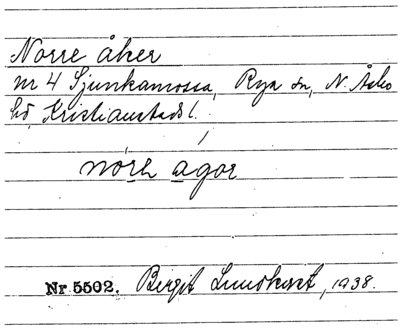 Norre åker
nr 4 Sjunkamossa, Rya sn, N. Åsbo
hd, Kristianstads l.
nórh agor
Nr 5502. Bergit Lundkvist, 1938.